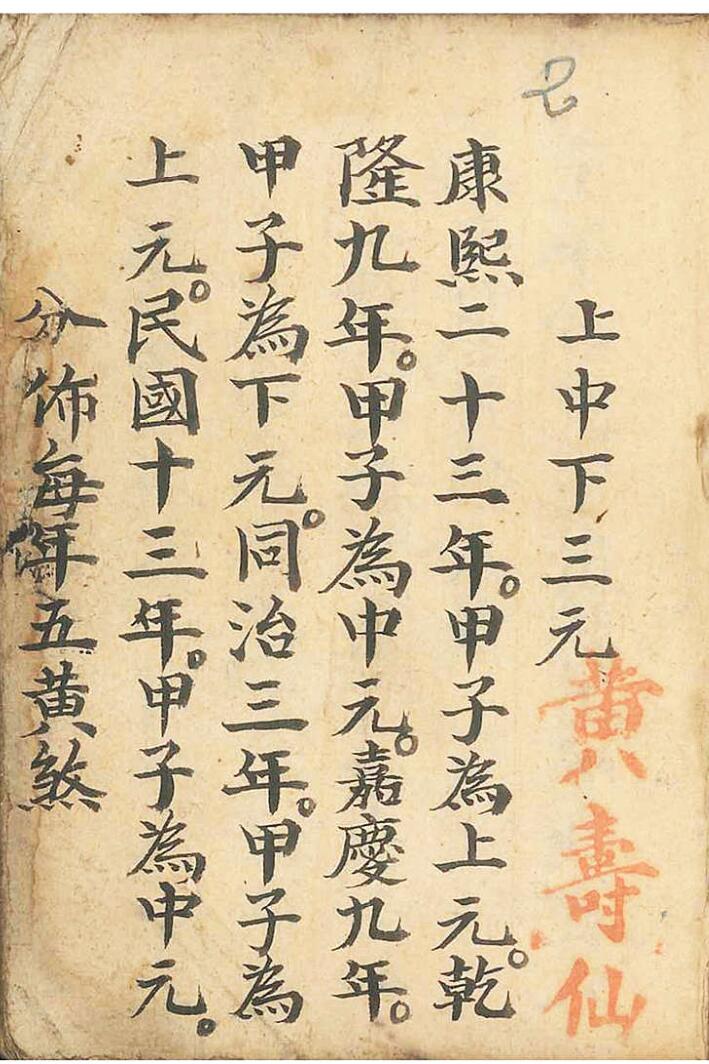 上中下三元
黄壽仙
康熙二十三年。甲子為上元。乾
隆九年。甲子為中元。嘉慶九年。
甲子為下元。同治三年。甲子為
上元。民國十三年。甲子為中元。
分佈每年五黄煞